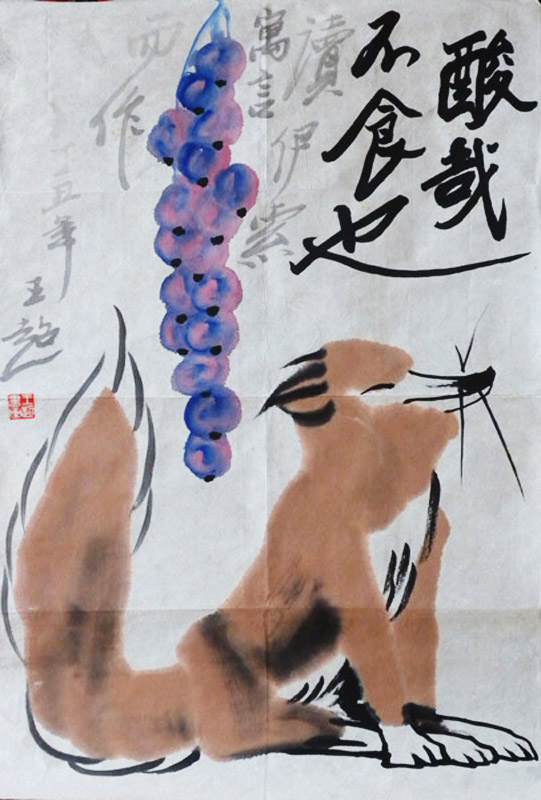 酸哉
不食也
讀伊索
寓言
而作
丁丑年
王